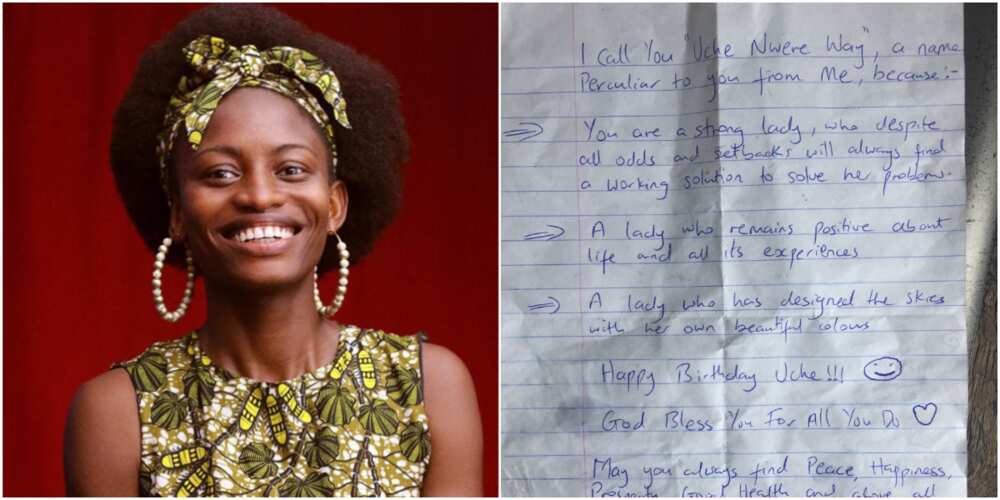 I call You "Uche Nwere Way", a name
Perculiar to you from Me, because:-
You are a strong lady, who despite
all odds and setbacks will always find
a working solution to solve her problems.
A lady who remains positive about
life and all its experiences
A lady who has designed the skies
with her own beautiful colours
Happy Birthday Uche!!!
God Bless You For All You Do
May you always find Peace, Happiness,
Prosperity, Good Health and above all